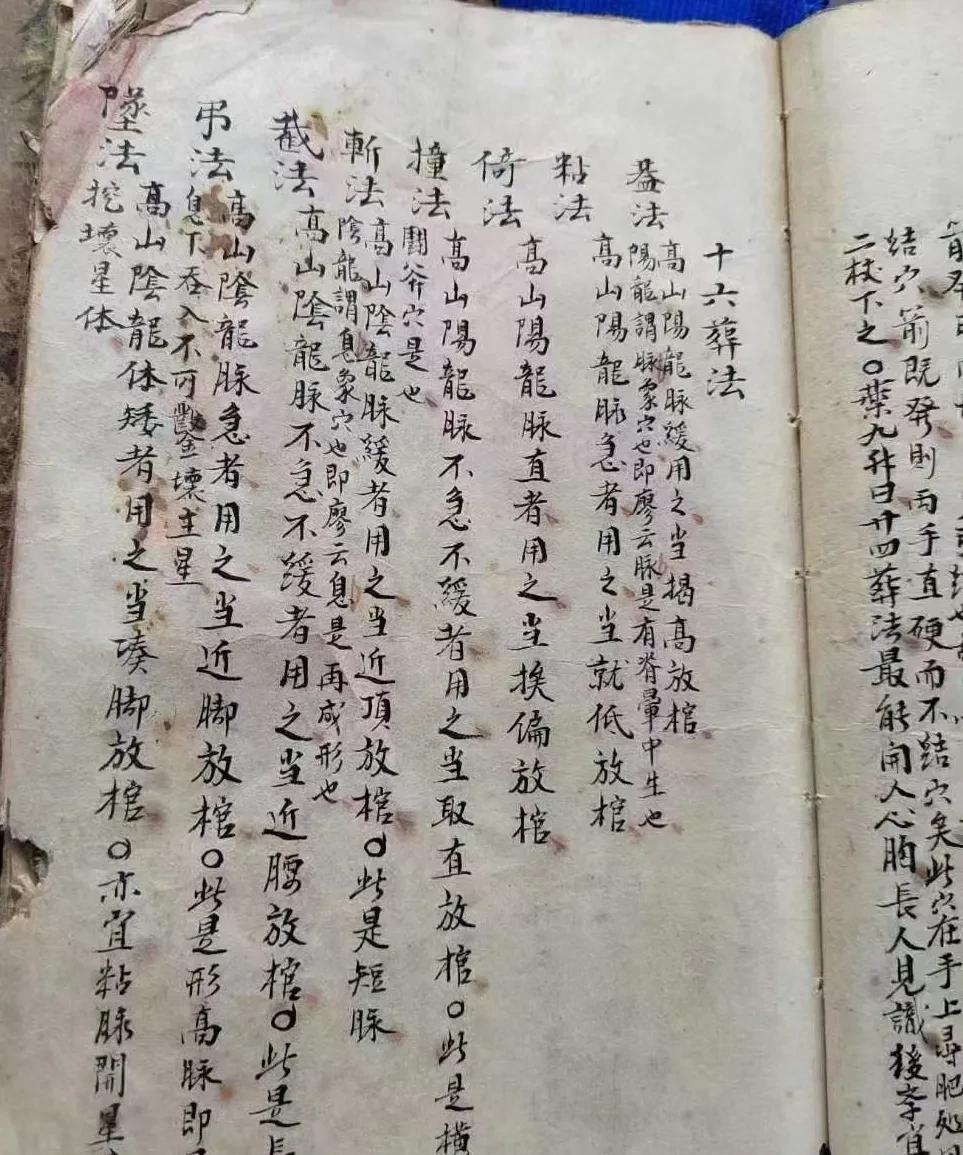 結穴前既発則両手直硬而不結穴矣此穴在手上尋肥処
二杖下之○藥九升曰廿四葬法最能開人心胸長人見識後李宜
十六葬法
盖法 高山陽龍脉緩用之当揭高放棺
陽龍謂脉象穴也即廖云脉是有脊暈中生也
粘法 高山陽龍脉急者用之当就低放棺
倚法 高山陽龍脉直者用之当挨偏放棺
撞法 高山陽龍脉不急不緩者用之当取直放棺○此是橫
鬭斧穴是也
斬法 高山陰龍脉緩者用之当近頂放棺○此是短脉
陰龍謂息象穴也即廖云息是再成形也
截法 高山陰龍脉不急不緩者用之当近腰放棺○此是長
吊法 高山陰龍脉急者用之当近脚放棺○此是形高脉即
息下吞入不可鑿壞主星
墜法 高山陰龍体矮者用之当凑脚放棺○亦宜粘脉開星
挖壞星体